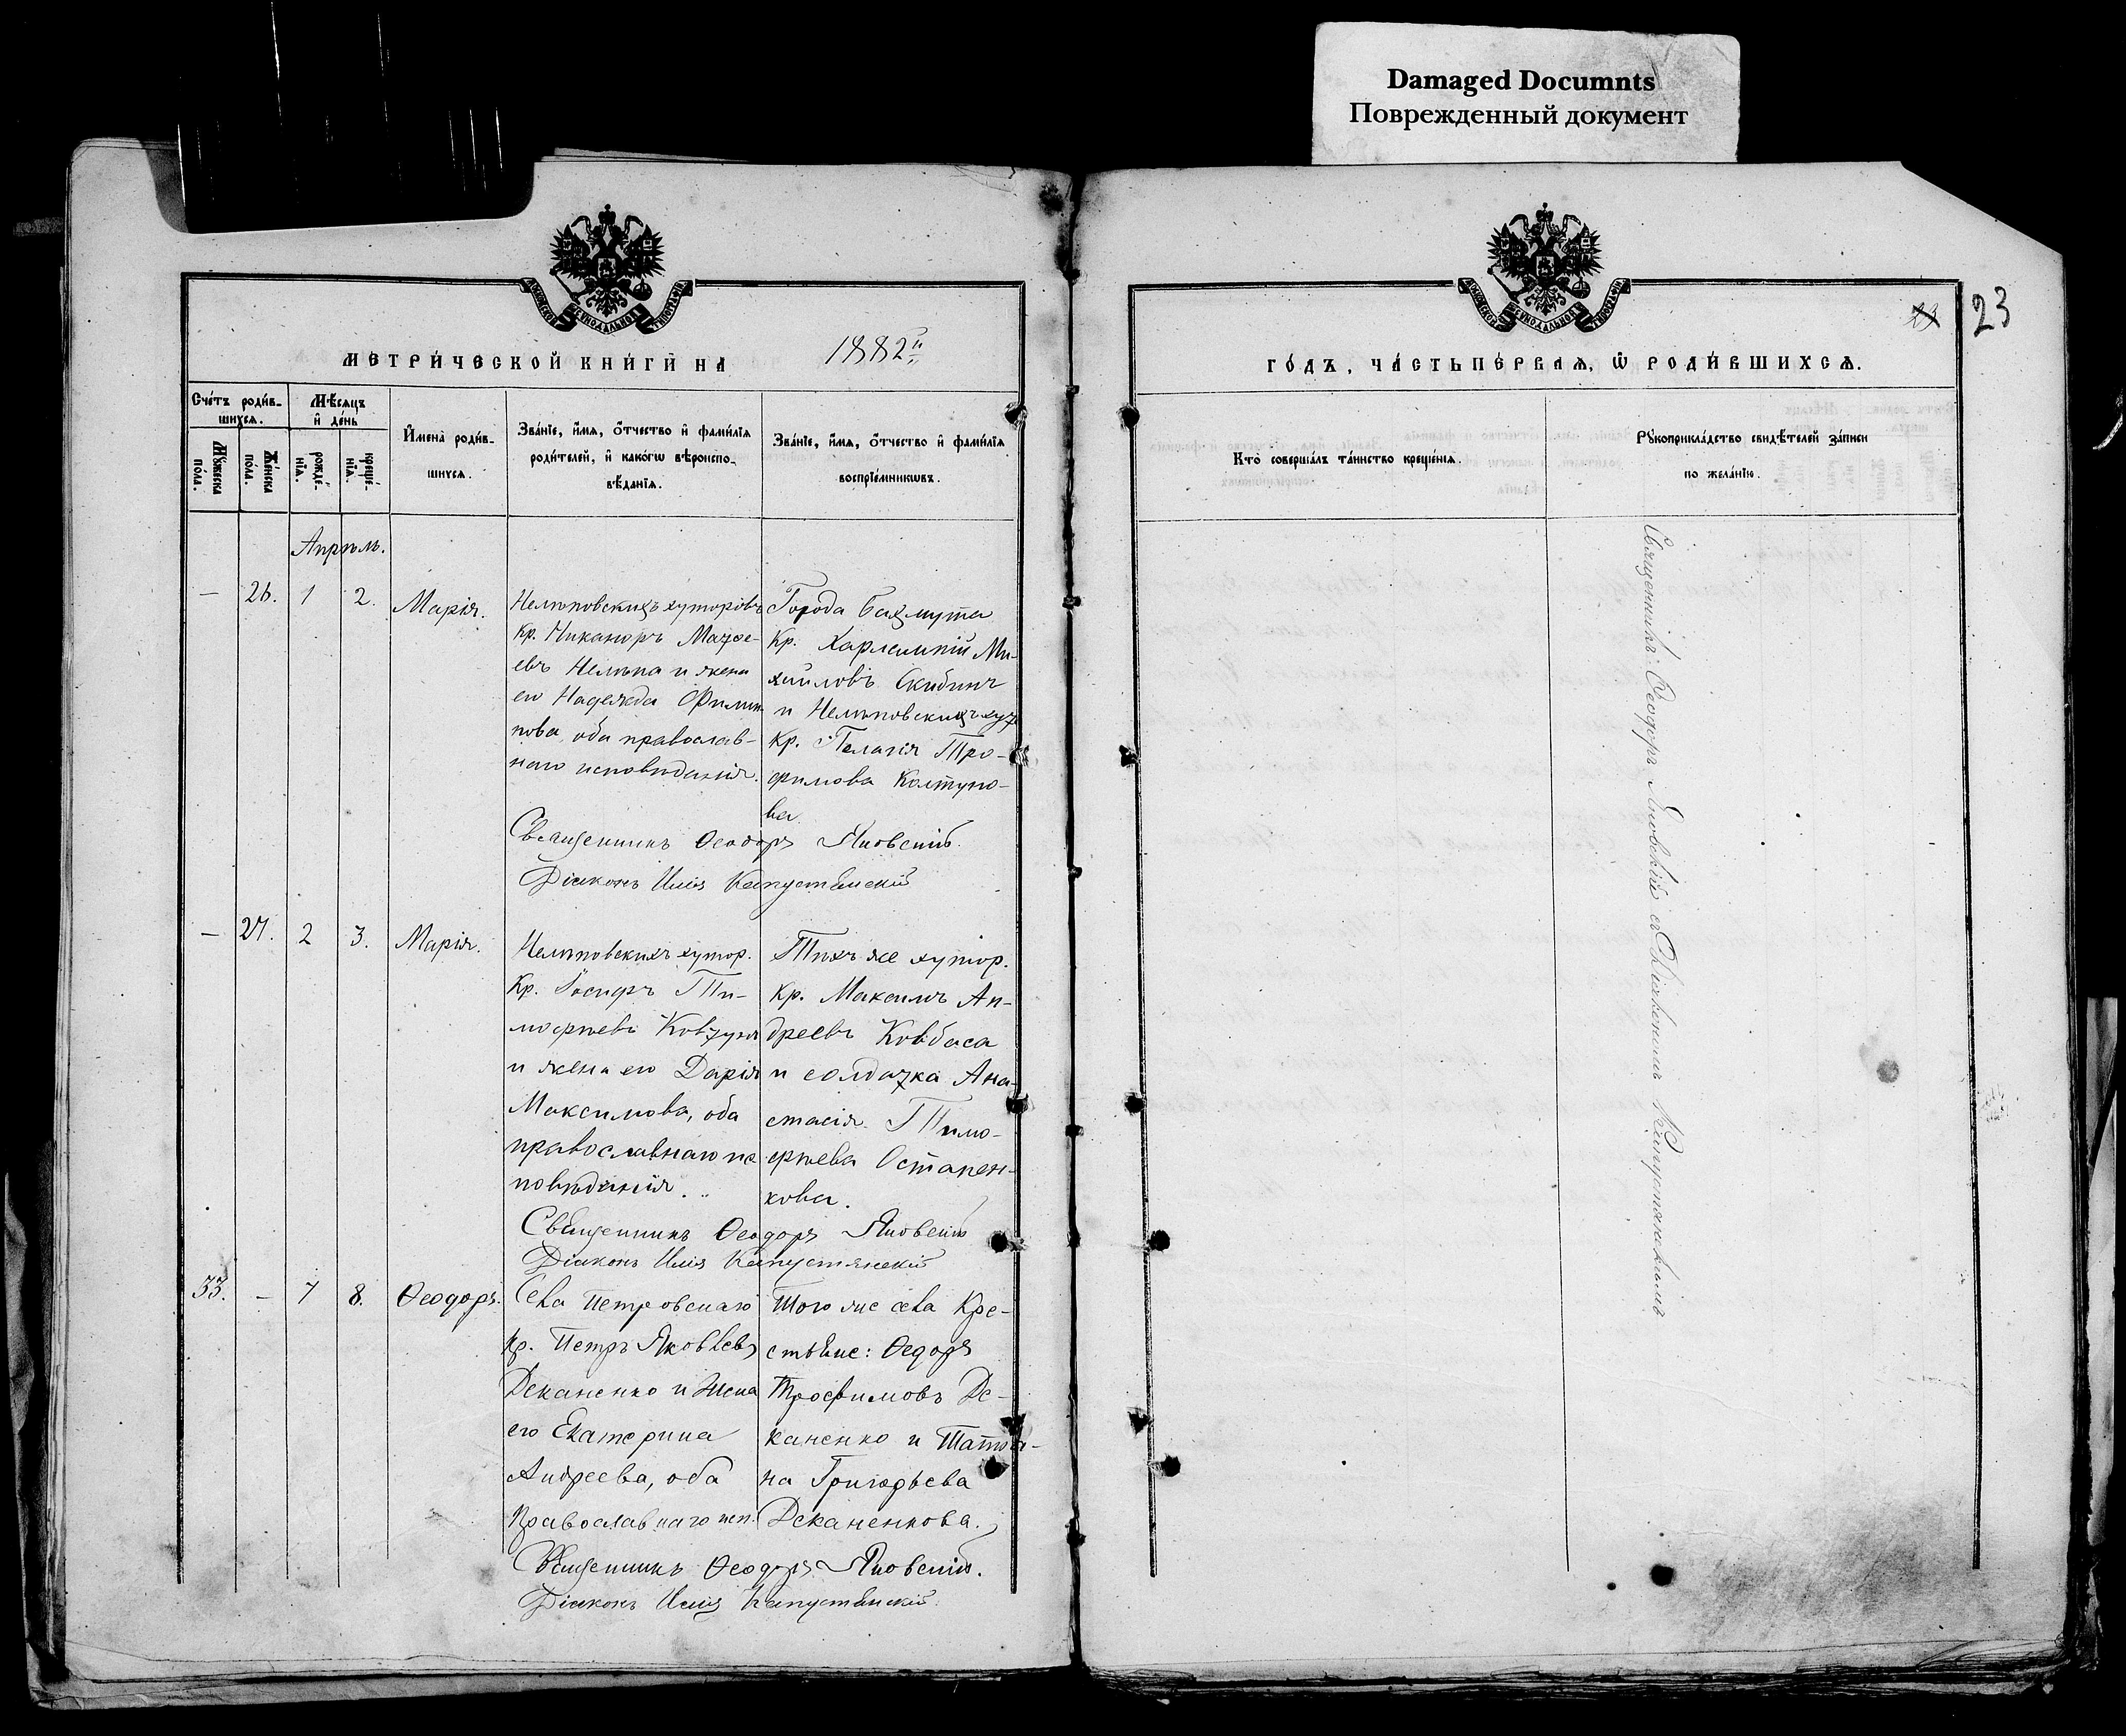 Damaged Documnts
Поврежденный документ
МОСКОВСКОЙ СѴНОДАЛЬНОЙ ТИПОГРАФІИ
МЕТРИ́ЧЕСКОЙ КНИ́ГИ НА 1882й
Сче́тъ роди́в-
шихся.
Мѣ́сяцъ
и҆ де́нь
Му́жеска
по́ла.
Же́нска
по́ла.
рожде́-
нїѧ.
креще́-
нїѧ.
И҆мена̀ роди́в-
шихся.
Зва́нїе, и҆́мѧ, ѻ҆́тчество и҆ фами́лїѧ
роди́телей, и҆ како́гѡ вѣроиспо-
вѣ́данїѧ.
Зва́нїе, и҆́мѧ, ѻ҆́тчество и҆ фами́лїѧ
воспрїе́мникѡвъ.
Апрѣль.
— 26. 1 2. Марія.
Нелѣповскихъ хуторовъ
Кр. Никаноръ Матфе-
евъ Нелѣпа и жена
его Надежда Филип-
пова, оба православ-
наго исповѣданія.
Города Бахмута
Кр. Харлампій Ми-
хайловъ Скибинъ
и Нелѣповскихъ хут.
Кр. Пелагія Тро-
фимова Колтуно-
ва.
Священникъ Ѳеодоръ Яновскій.
Діаконъ Илія Капустянскій
— 27. 2 3. Марія.
Нелѣповскихъ хутор.
Кр. Іосифъ Ти-
мофѣевъ Ковтунъ
и жена его Дарія
Максимова, оба
православнаго ис
повѣданія.
Тѣхъ же хутор.
Кр. Максимъ Ан-
дреевъ Ковбаса
и солдатка Ана-
стасія Тимо-
фѣева Остапен-
кова.
Священникъ Ѳеодоръ Яновскій
Діаконъ Илія Капустянскій
33. — 7 8. Ѳеодоръ.
Села Петровскаго
Кр. Петръ Яковлевъ
Деканенко и жена
его Екатерина
Андреева, оба
Православнаго исп.
Того же села Кре-
стьяне: Ѳедоръ
Трофимовъ Де-
каненко и Татья-
на Григорьева
Деканенкова.
Священникъ Ѳеодоръ Яновскій.
Діаконъ Илія Капустянскій.
МОСКОВСКОЙ СѴНОДАЛЬНОЙ ТИПОГРАФІИ
23
ГО́ДЪ, ЧА́СТЬ ПЕ́РВАЯ, Ѡ҆ РОДИ́ВШИХСЯ.
Кто̀ соверша́лъ та́инство креще́нїѧ.
Рꙋкоприкла́дство свидѣ́телей за́писи
по жела́нїю.
Священникъ Ѳеодоръ Яновскій съ Діакономъ Капустянскимъ